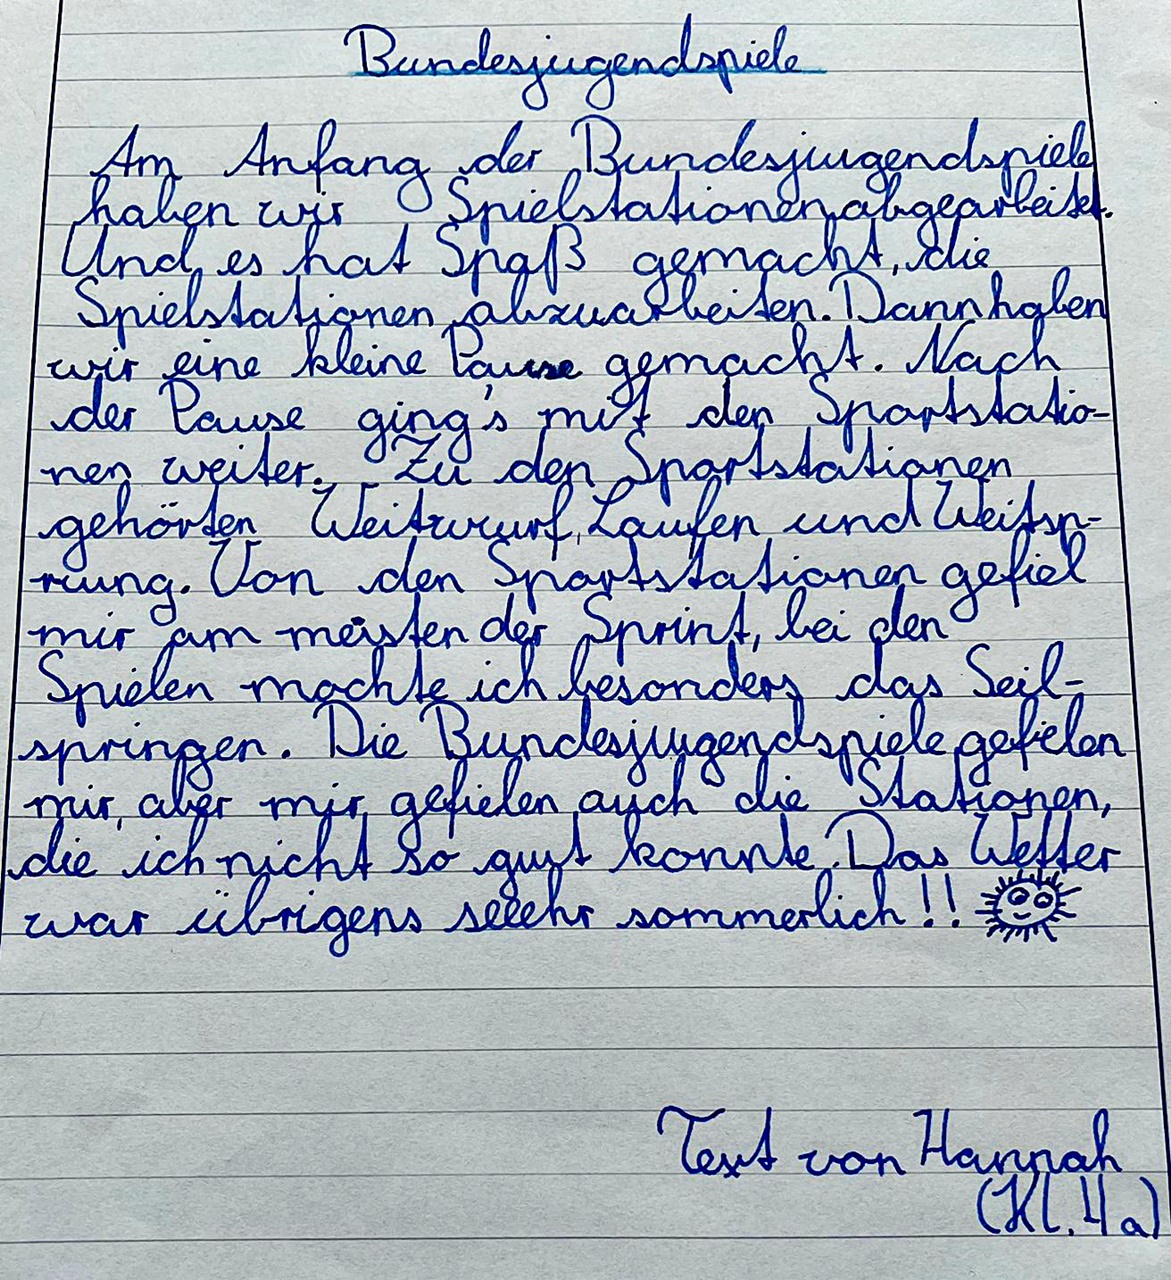 Bundesjugendspiele
Am Anfang der Bundesjugendspiele
haben wir Spielstationen abgearbeitet.
Und es hat Spaß gemacht, die
Spielstationen abzuarbeiten. Dann haben
wir eine kleine Pause gemacht. Nach
der Pause ging's mit den Sportstatio-
nen weiter. Zu den Sportstationen
gehörten Weitwurf, Laufen und Weitsp-
rung. Von den Sportstationen gefiel
mir am meisten der Sprint, bei den
Spielen mochte ich besonders das Seil-
springen. Die Bundesjugendspiele gefielen
mir, aber mir gefielen auch die Stationen,
die ich nicht so gut konnte. Das Wetter
war übrigens seeehr sommerlich!!
Text von Hannah
(Kl. 4a)